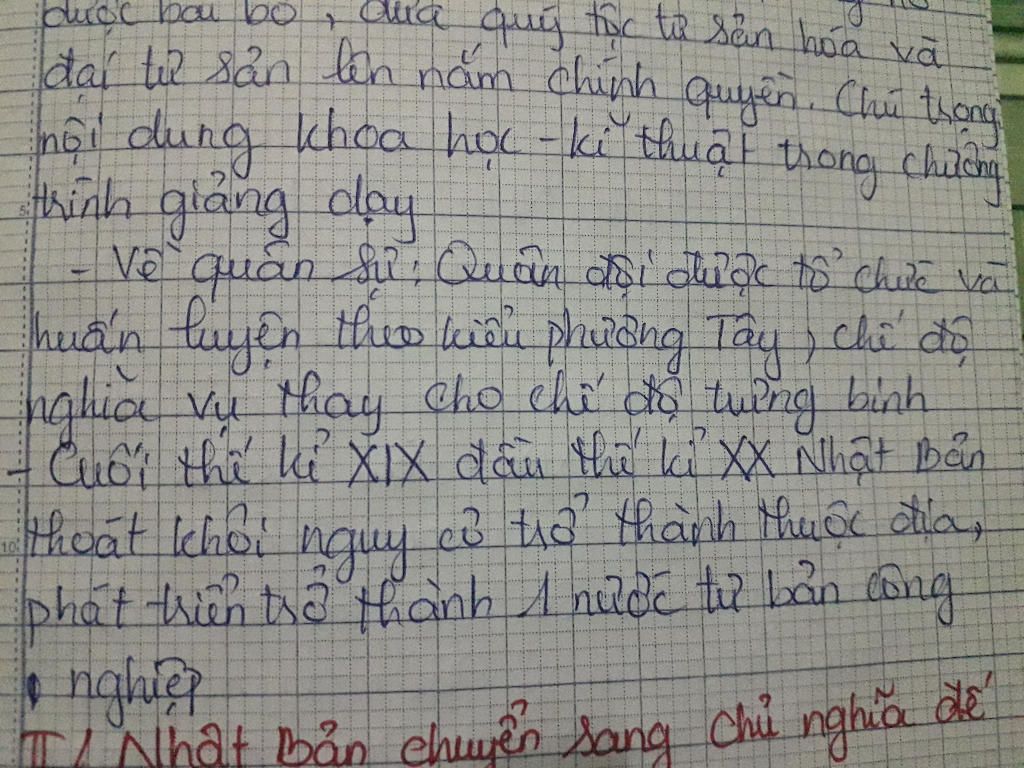 được bãi bỏ, đưa quý tộc tư sản hóa và
đại tư sản lên nắm chính quyền. Chú trọng
nội dung khoa học - kĩ thuật trong chương
trình giảng dạy
- Về quân sự: Quân đội được tổ chức và
huấn luyện theo kiểu phương Tây, chế độ
nghĩa vụ thay cho chế độ trưng binh
- Cuối thế kỉ XIX đầu thế kỉ XX Nhật Bản
thoát khỏi nguy cơ trở thành thuộc địa,
phát triển trở thành 1 nước tư bản công
nghiệp
II / Nhật Bản chuyển sang chủ nghĩa đế